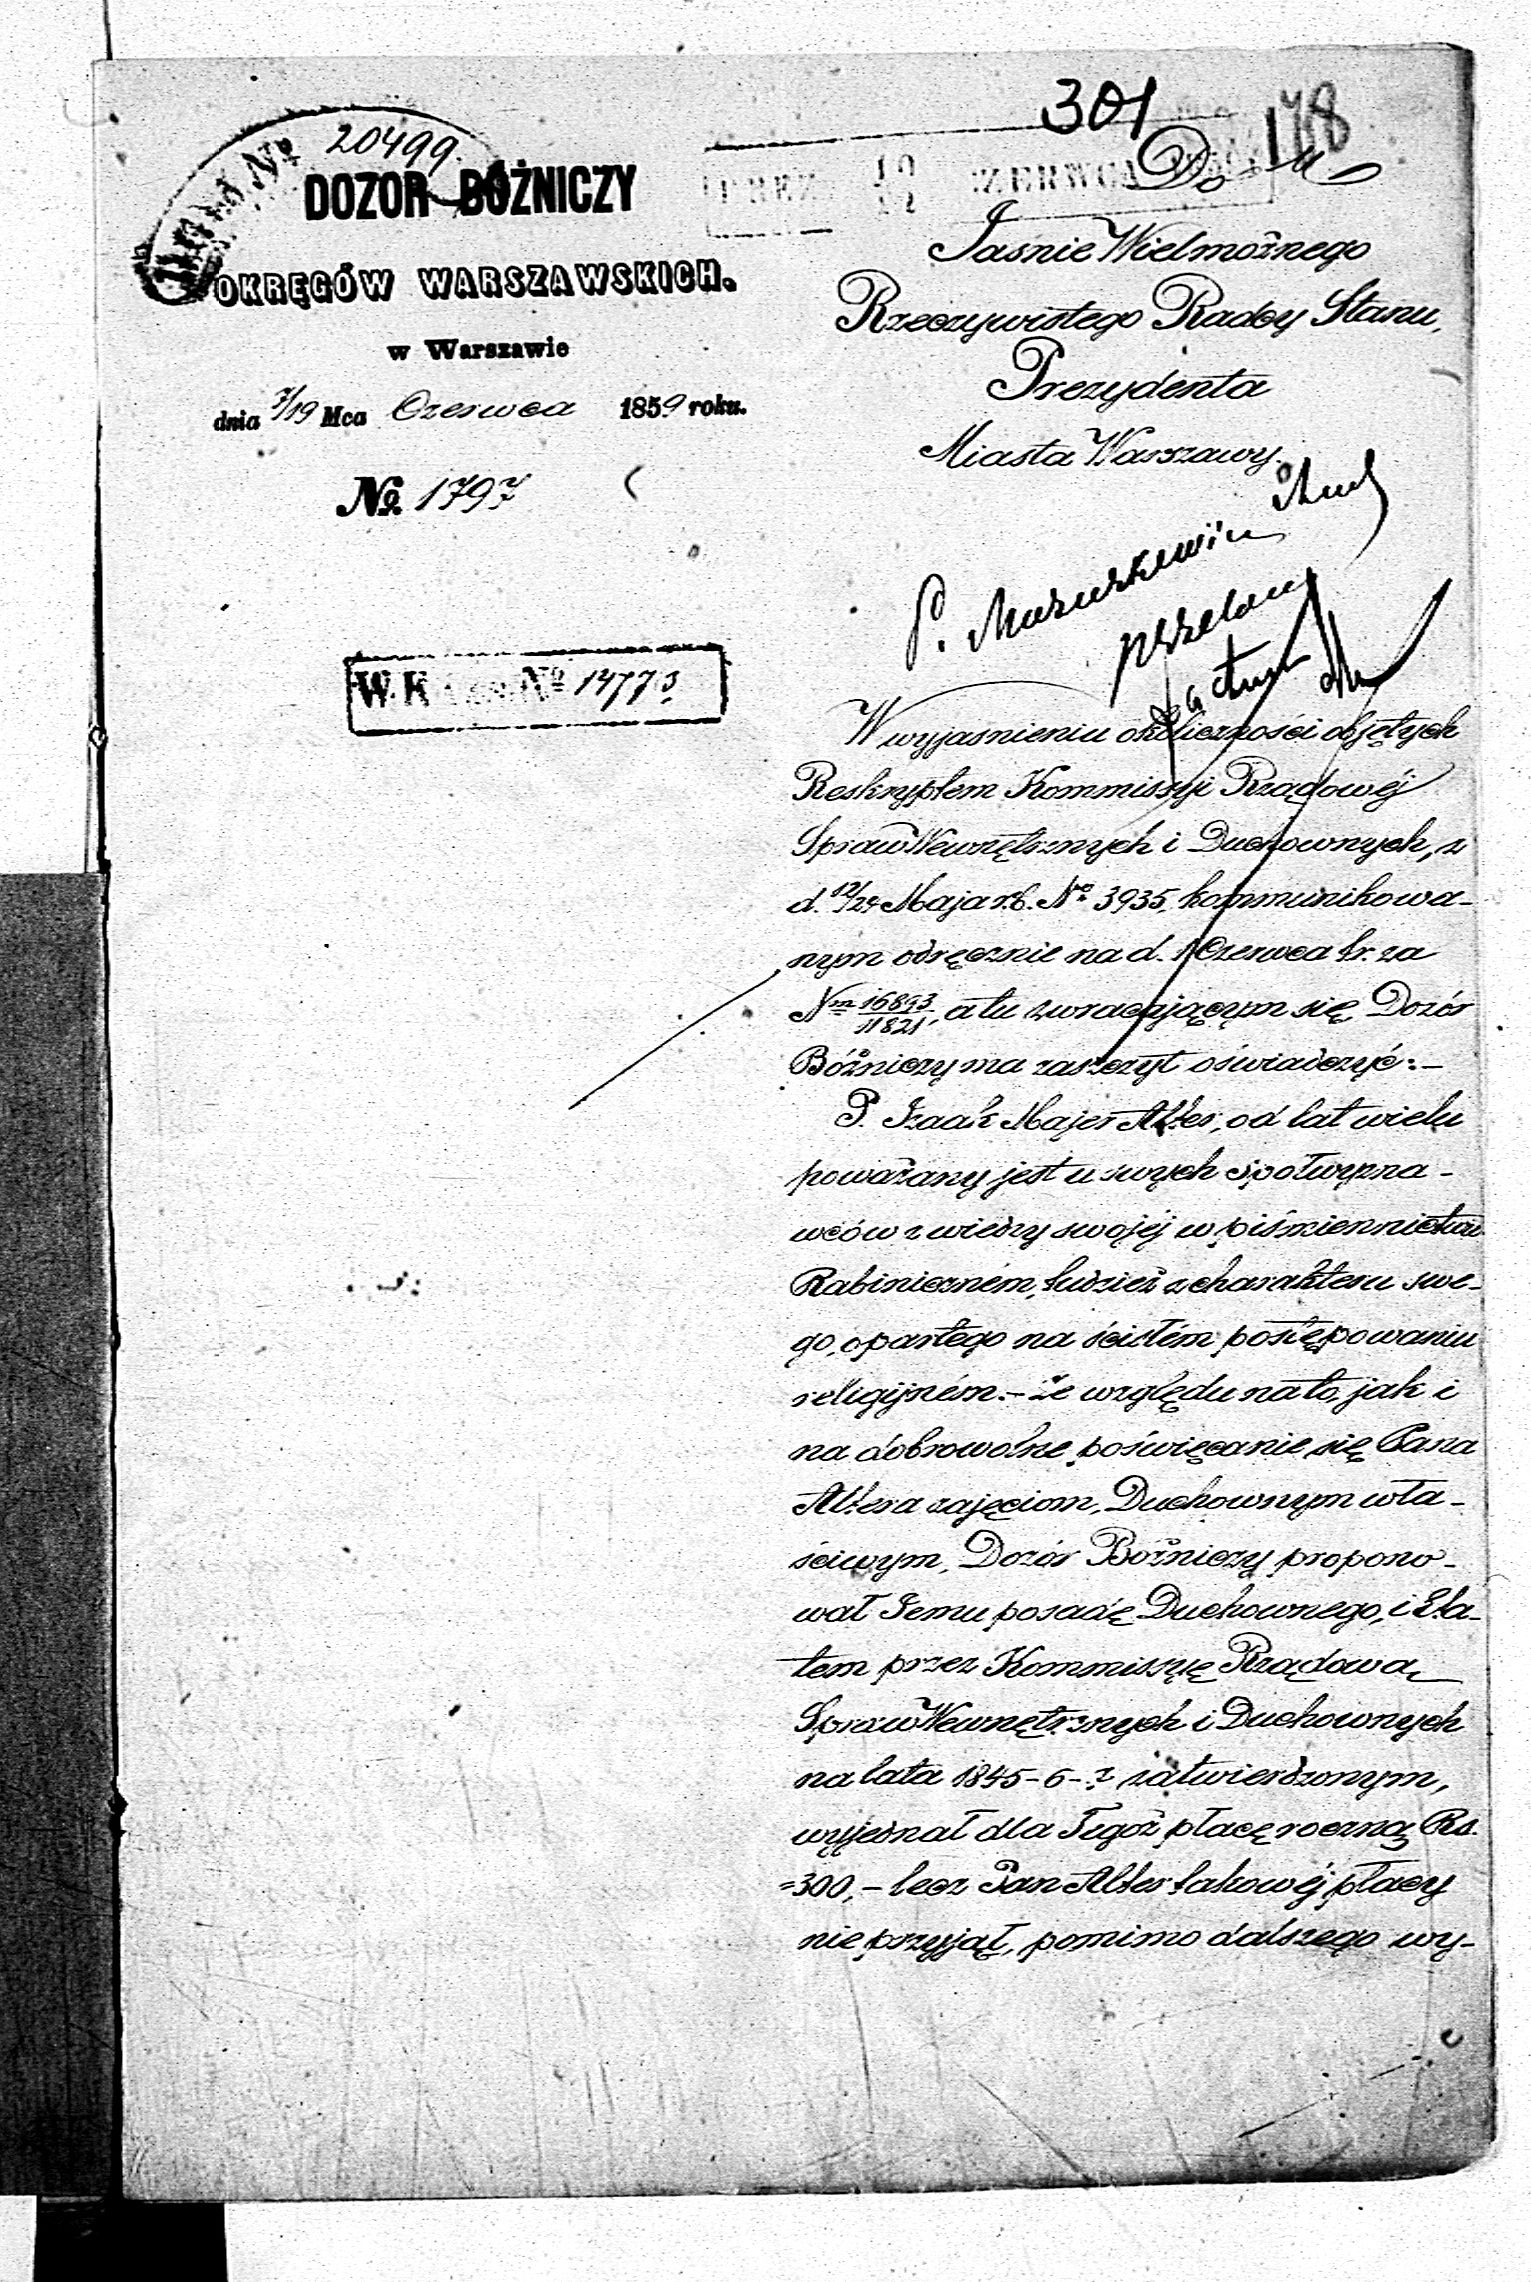 301
178
20499.
DOZOR BÓŻNICZY
OKRĘGÓW WARSZAWSKICH.
w Warszawie
dnia 7/19 Mca Czerwca 1859 roku.
№ 1797
CZERWCA
Do
Jaśnie Wielmożnego
Rzeczywistego Radcy Stanu,
Prezydenta
Miasta Warszawy.
P. Mazurkiewicz
W. K № 14773
W wyjasnieniu okoliczności objętych
Reskryptem Kommissyi Rządowéj
Spraw Wewnętrznych i Duchownych, z
d. 12/24 Maja r.b. № 3935, kommunikowa-
nym odręcznie na d. 1 Czerwca b.r. za
Nm 16893/11821, a tu zwracającym się, Dozór
Bóżniczy ma zaszczyt oświadczyć:-
P. Izaak Majer Alter, od lat wielu
poważany jest u swych spółwyzna-
wców z wiedzy swojéj w piśmiennictwie
Rabiniczném, tudzież z charakteru swe-
go, opartego na ścisłém postępowaniu
religijném.- Ze względu na to, jak i
na dobrowolne poświęcanie się Pana
Altera zajęciom, Duchownym wła-
ściwym, Dozór Bóżniczy propono-
wał Jemu posadę Duchownego, i Eta-
tem przez Kommissyę Rządową
Spraw Wewnętrznych i Duchownych
na lata 1845-6-7 zatwierdzonym,
wyjednał dla Tegoż płacę roczną Rs.
=300,- lecz Pan Alter takowéj płacy
nie przyjął, pomimo dalszego wy-